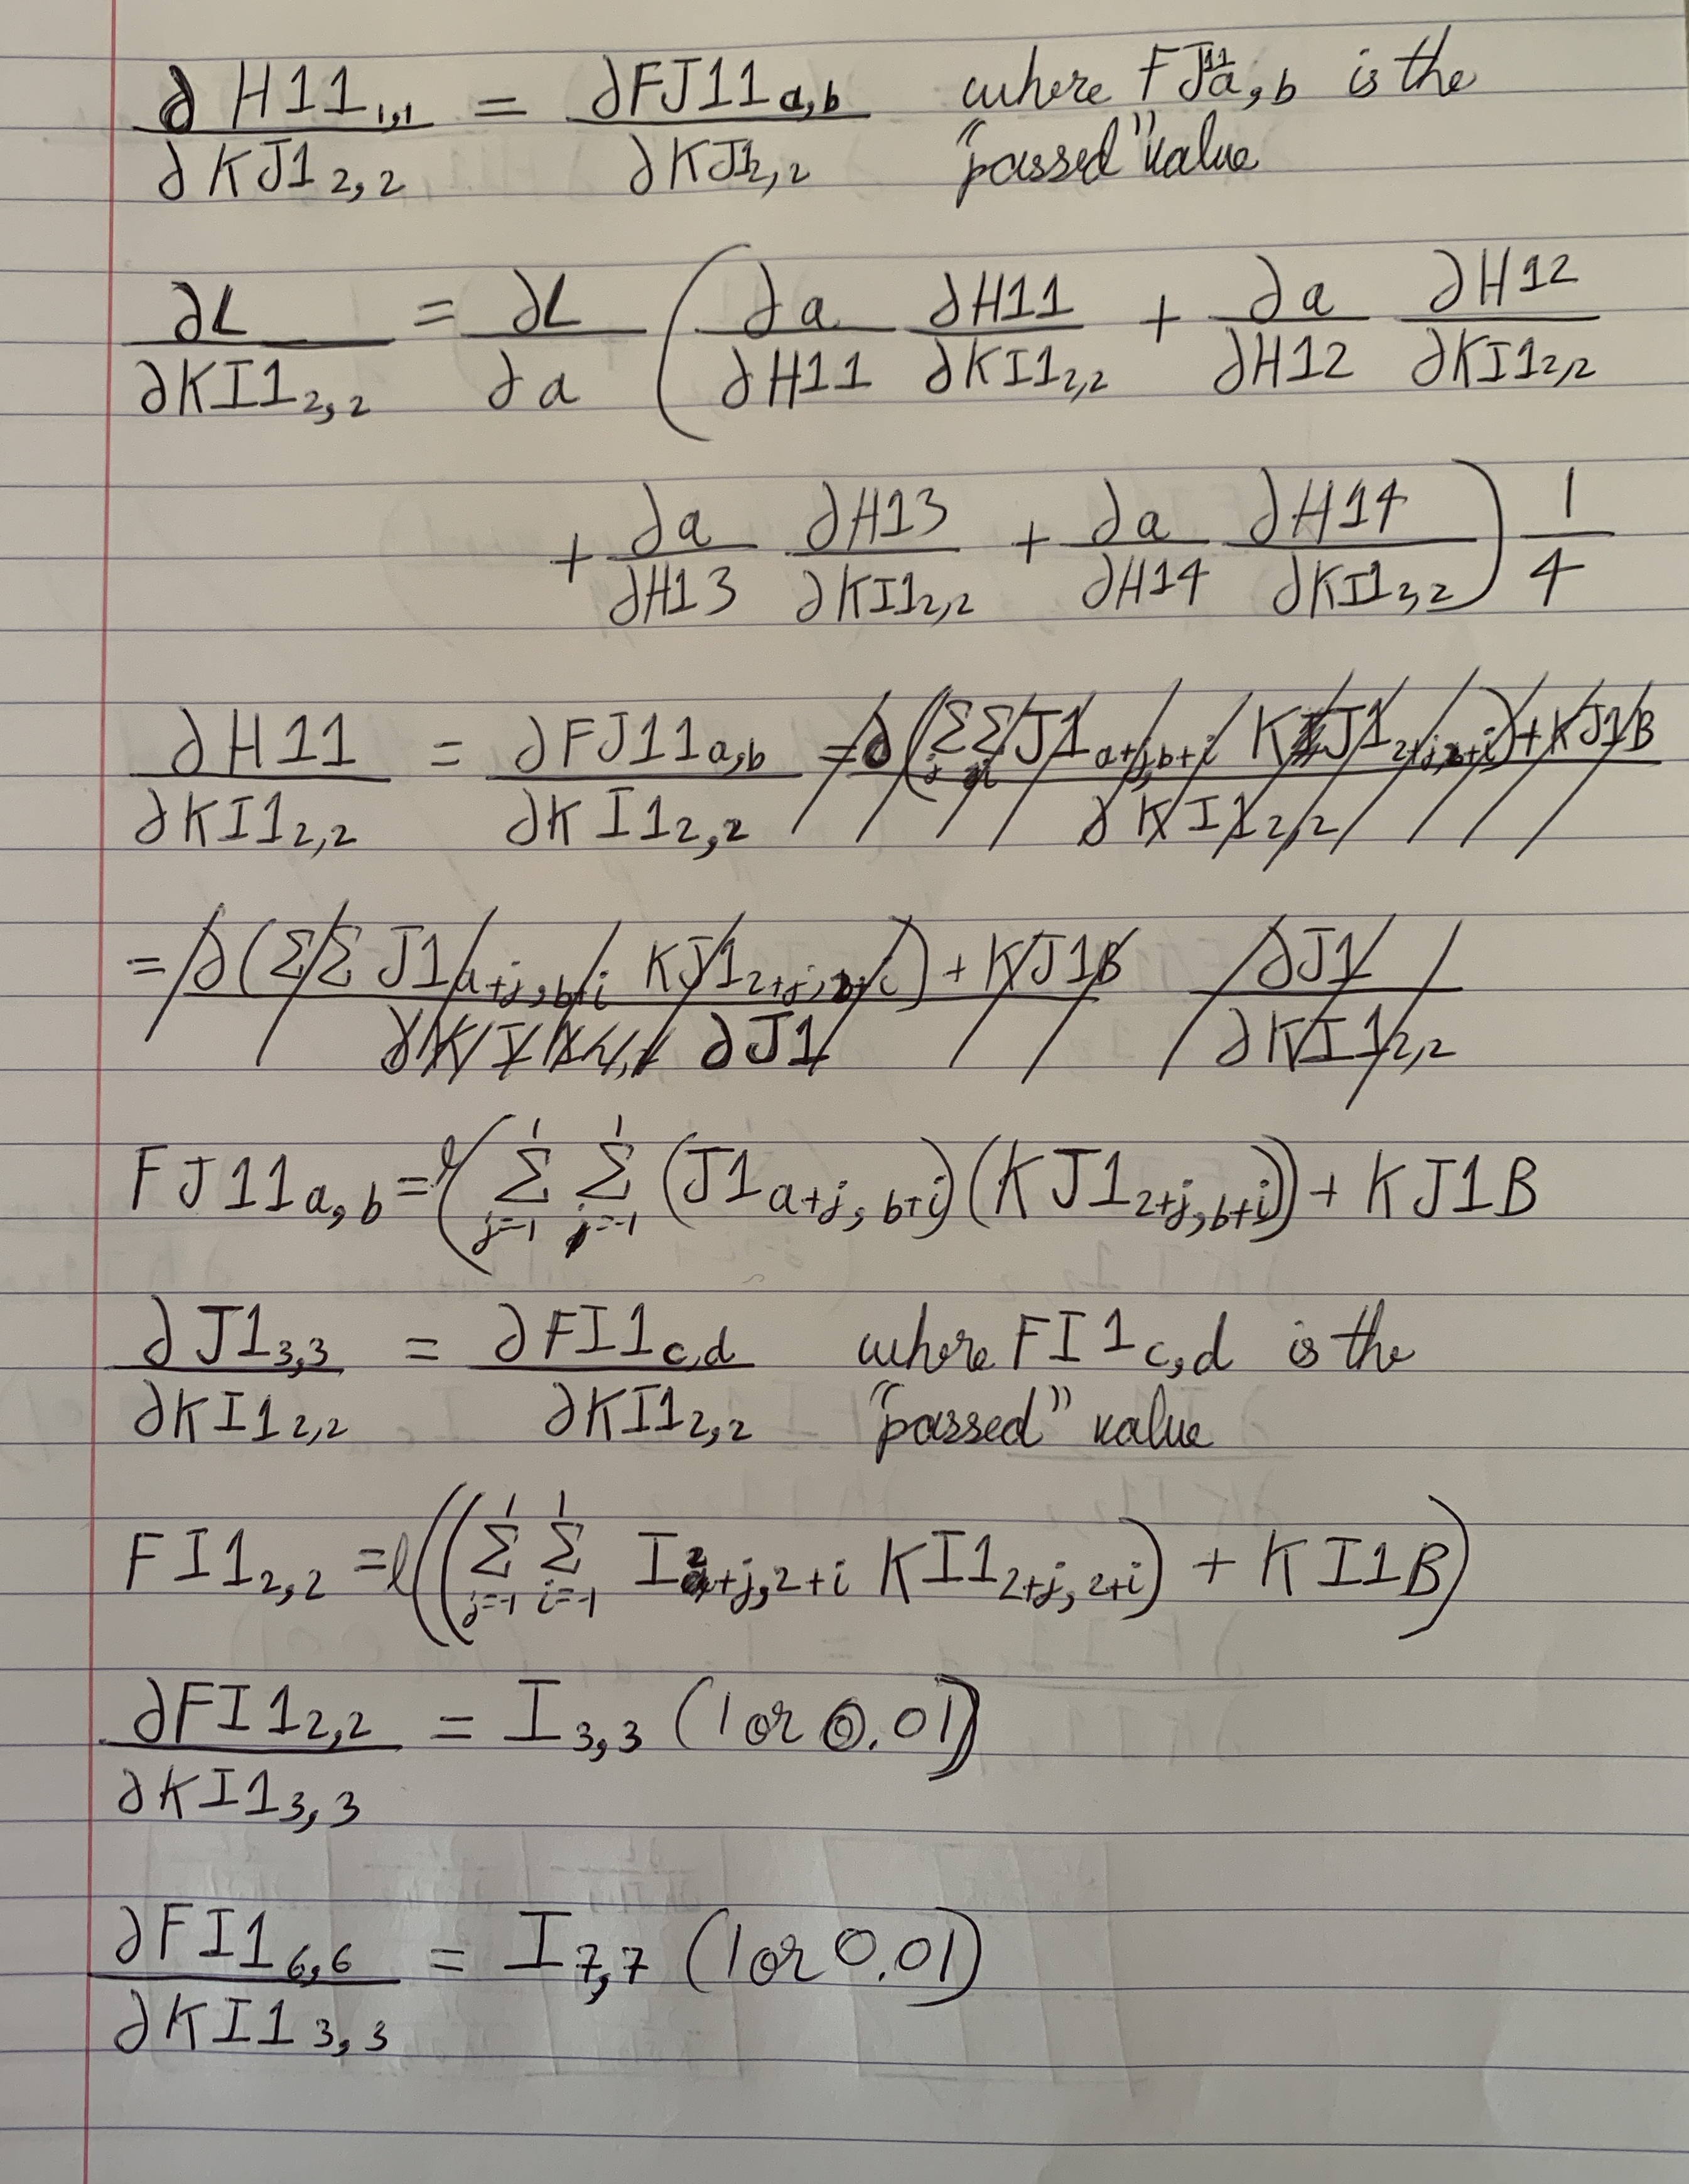 ∂H11₁,₁ / ∂KJ1₂,₂ = ∂FJ11a,b / ∂KJ1₂,₂ where FJ11a,b is the
"passed" value
∂L / ∂KI1₂,₂ = ∂L / ∂a ( ∂a / ∂H11 ∂H11 / ∂KI1₂,₂ + ∂a / ∂H12 ∂H12 / ∂KI1₂,₂
+ ∂a / ∂H13 ∂H13 / ∂KI1₂,₂ + ∂a / ∂H14 ∂H14 / ∂KI1₂,₂ ) 1 / 4
∂H11 / ∂KI1₂,₂ = ∂FJ11a,b / ∂KI1₂,₂ = ∂(ΣΣ J1a+j,b+i KJ1₂+j,₂+i) + KJ1B / ∂KI1₂,₂
= ∂(ΣΣ J1a+j,b+i KJ1₂+j,₂+i) + KJ1B / ∂J1 ∂J1 / ∂KI1₂,₂
FJ11a,b = l( Σ(j=-1 to 1) Σ(j=-1 to 1) (J1a+j,b+i)(KJ1₂+j,b+i)) + KJ1B
∂J1₃,₃ / ∂KI1₂,₂ = ∂FI1c,d / ∂KI1₂,₂ where FI1c,d is the
"passed" value
FI1₂,₂ = l(( Σ(j=-1 to 1) Σ(i=-1 to 1) I₂+j,₂+i KI1₂+j,₂+i) + KI1B)
∂FI1₂,₂ / ∂KI1₃,₃ = I₃,₃ (1 or 0.01)
∂FI1₆,₆ / ∂KI1₃,₃ = I₇,₇ (1 or 0.01)